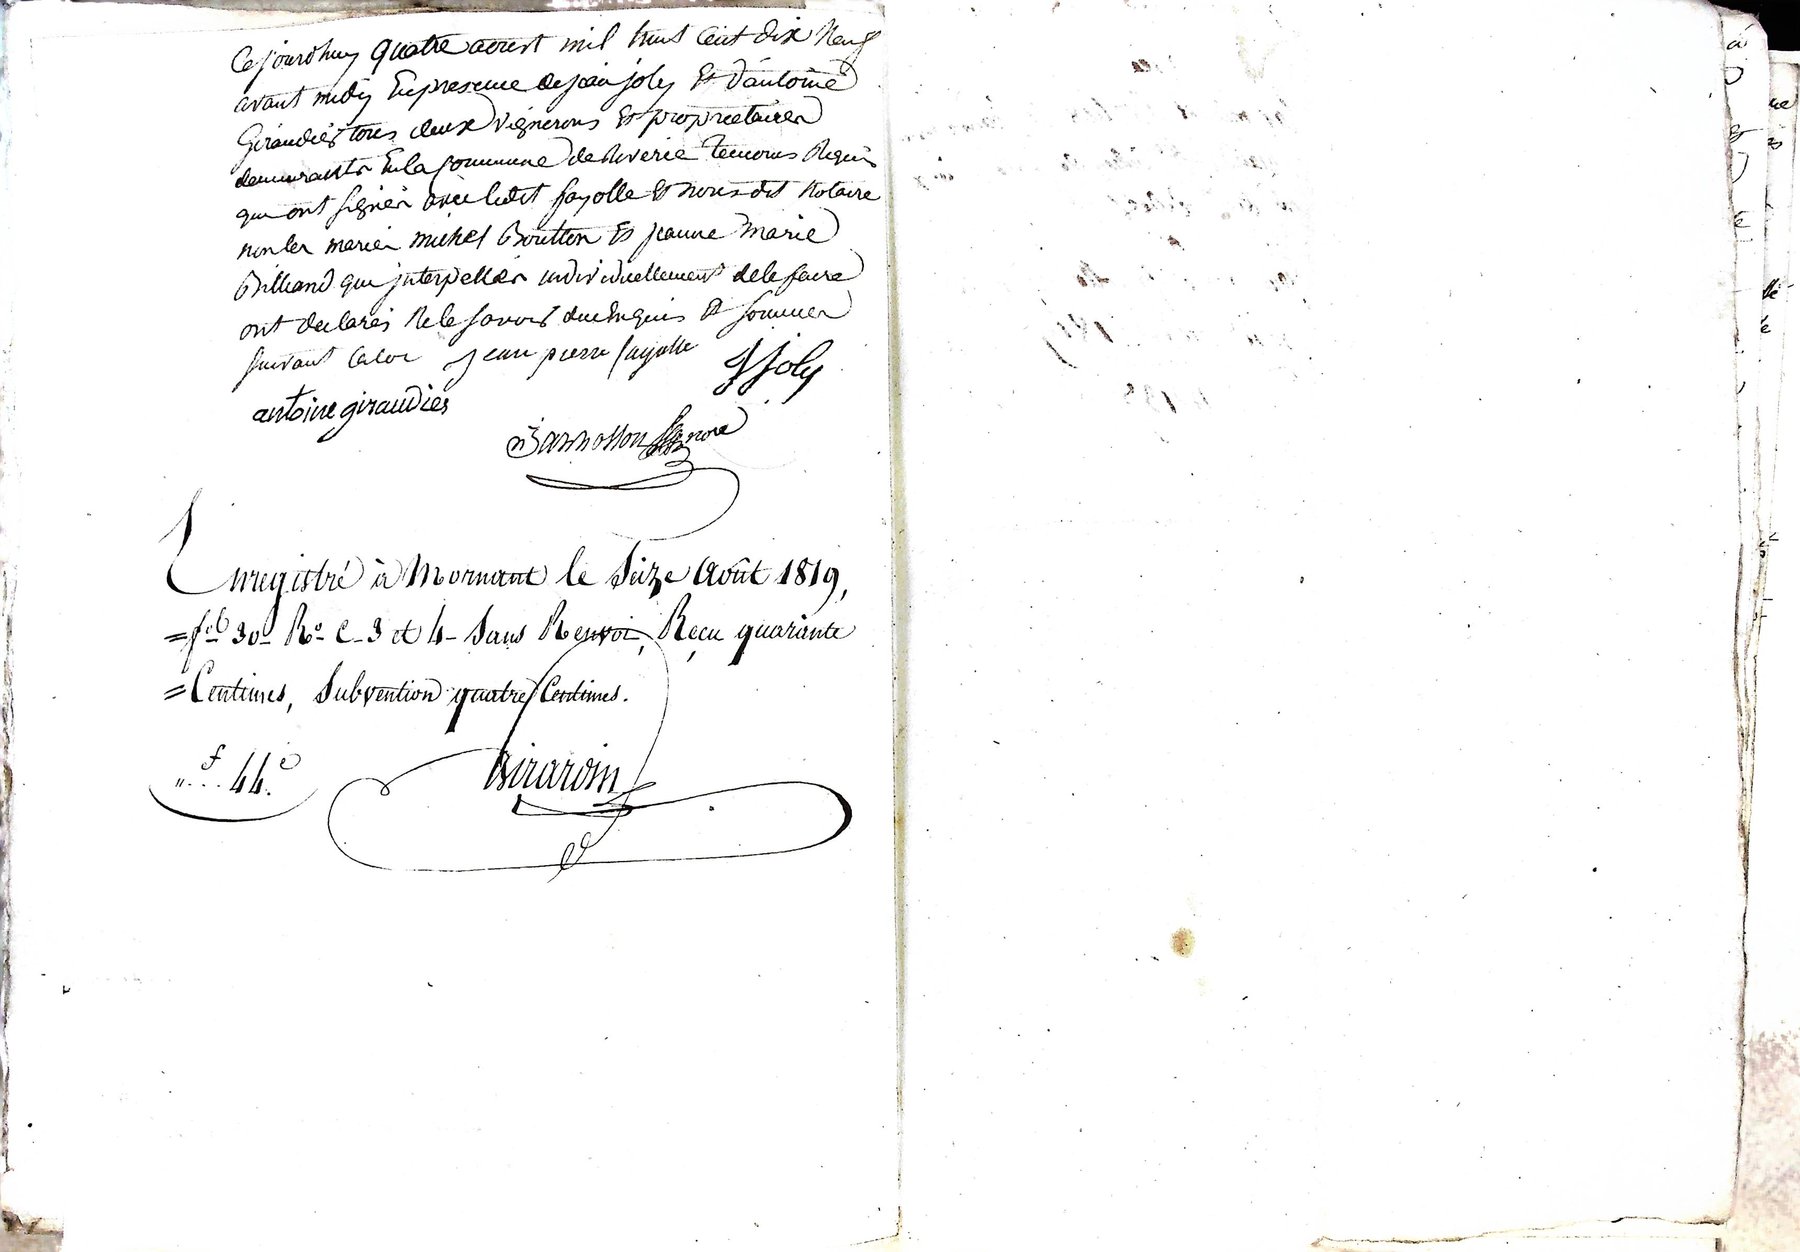 Cejourdhuy quatre aoust mil huit Cent dix Neuf
avant midy En presence de jean joly Et d'antoine
Giraudies tous deux vignerons Et proprietaires
demeurants En la Commune de Riverie Temoins Requis
qui ont signés avec ledit fayolle Et nous dit Notaire
non les mariés michel Boutton Et jeanne Marie
Billiand qui jnterpellés individuellement de le faire
ont declarés Ne le savoir duement Requis Et sommés
suivant la loi jean pierre fayolle J Joly
antoine giraudies
enregistré à Mornant le Seize Août 1819,
= f° 30 R° C 3 et 4 Sans Renvoi, Reçu quarante
= Centimes, Subvention quatre Centimes.
f 44 c
Girardin